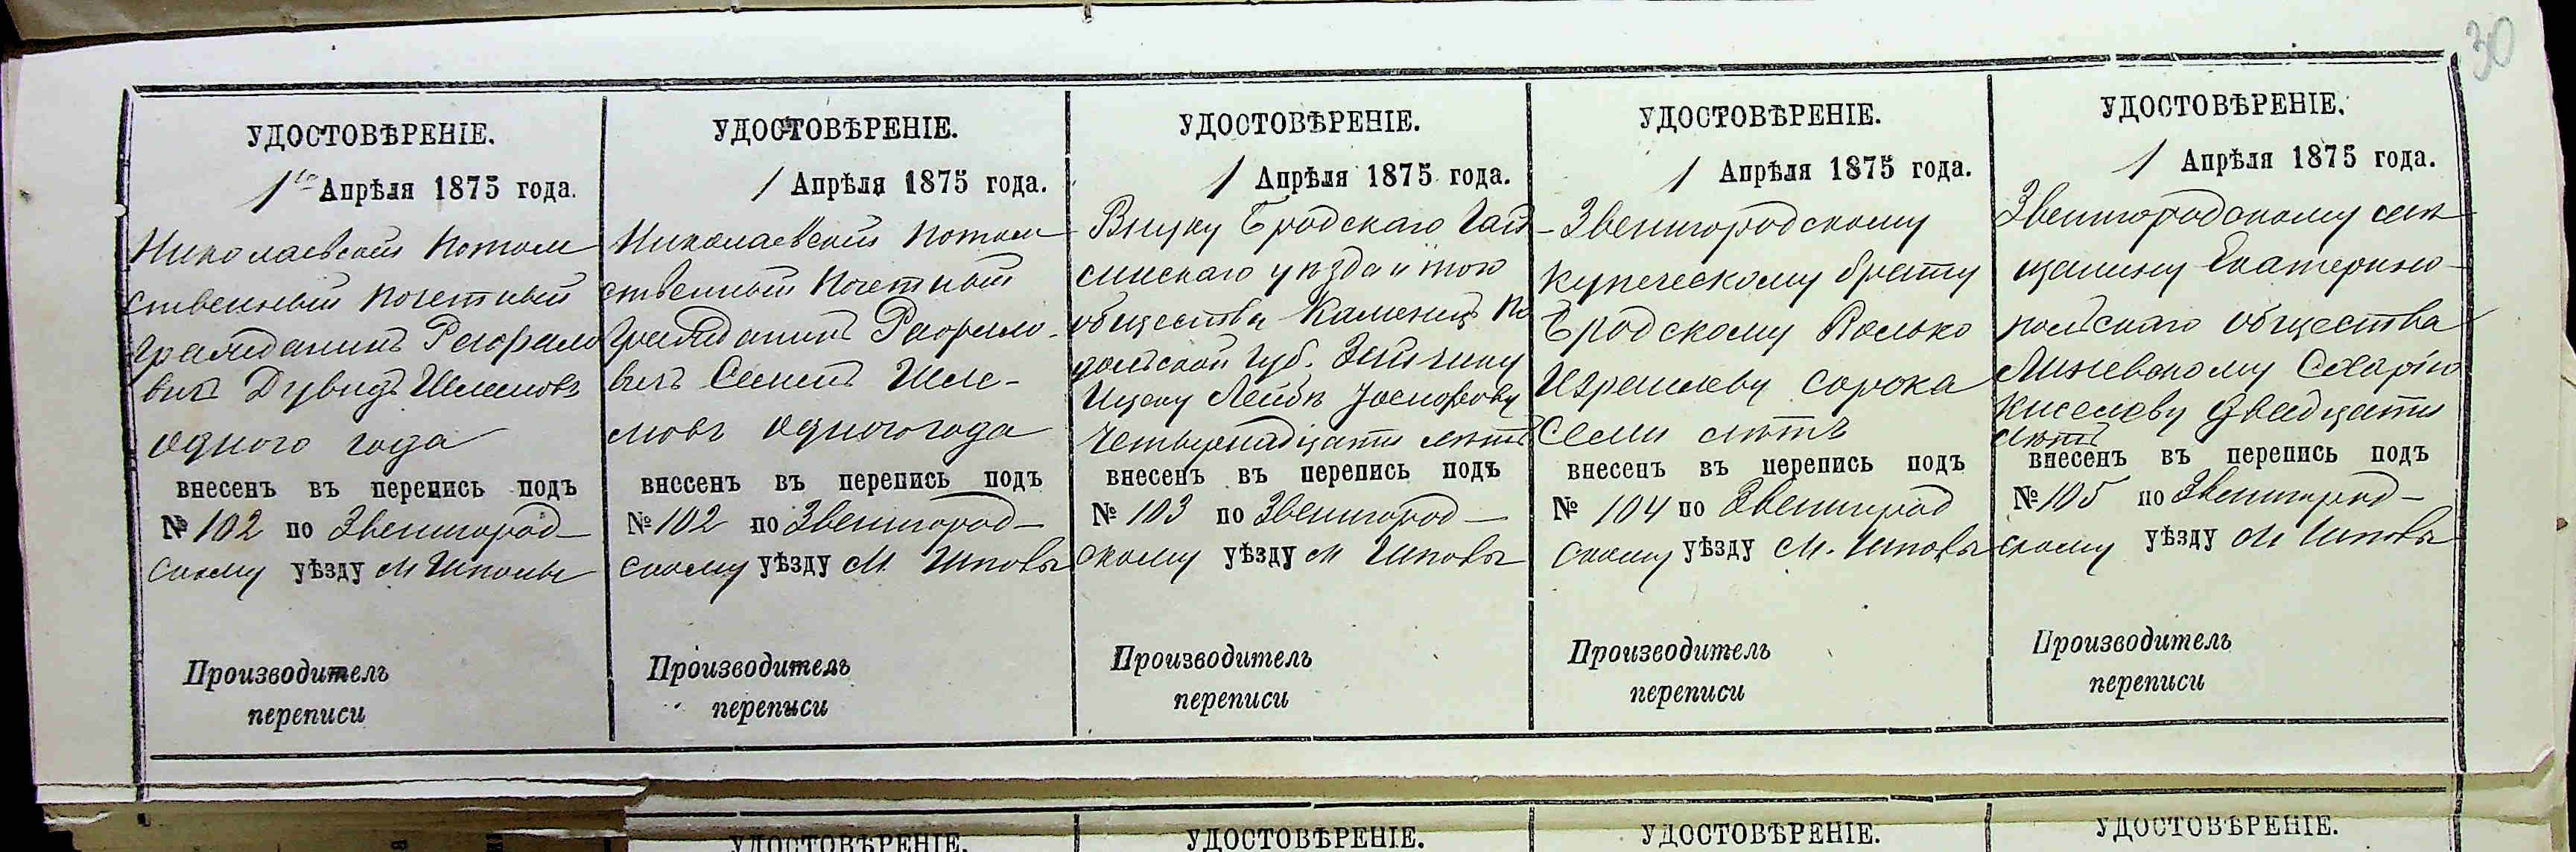 30
УДОСТОВѢРЕНІЕ.
1го Апрѣля 1875 года.
Николаевскій потом
ственный почетный
гражданинъ Рафало
вичъ Дувидъ Шлемовъ
одного года
внесенъ въ перепись подъ
№ 102 по Звенигород-
скому уѣзду М Шполы
Производитель
переписи
УДОСТОВѢРЕНІЕ.
1 Апрѣля 1875 года.
Николаевскій потом
ственный почетный
гражданинъ Рафало-
вичъ Семенъ Шле-
мовъ одного года
внесенъ въ перепись подъ
№ 102 по Звенигород-
скому уѣзду М. Шполы
Производитель
переписи
УДОСТОВѢРЕНІЕ.
1 Апрѣля 1875 года.
Внуку Бродскаго Гай
синскаго уѣзда и того
общества Каменец По
дольской губ.
Ицку Лейбѣ Іосифову
Четырнадцати лѣтъ
внесенъ въ перепись подъ
№ 103 по Звенигород-
скому уѣзду М Шполы
Производитель
переписи
УДОСТОВѢРЕНІЕ.
1 Апрѣля 1875 года.
Звенигородскому
купеческому брату
Бродскому
Израилеву сорока
Семи лѣтъ
внесенъ въ перепись подъ
№ 104 по Звенигород
скому уѣзду М. Шполы
Производитель
переписи
УДОСТОВѢРЕНІЕ.
1 Апрѣля 1875 года.
Звенигородскому мѣ
щанину Екатерино-
польскаго общества
Киселеву Двадцати
лѣтъ
внесенъ въ перепись подъ
№ 105 по Звенигород-
скому уѣзду М Шполы
Производитель
переписи
УДОСТОВѢРЕНІЕ.
УДОСТОВѢРЕНІЕ.
УДОСТОВѢРЕНІЕ.
УДОСТОВѢРЕНІЕ.